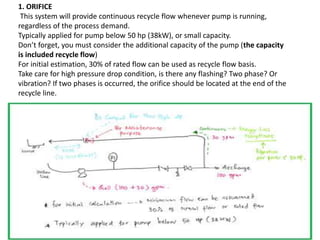 1. ORIFICE
This system will provide continuous recycle flow whenever pump is running,
regardless of the process demand.
Typically applied for pump below 50 hp (38kW), or small capacity.
Don't forget, you must consider the additional capacity of the pump (the capacity
is included recycle flow)
For initial estimation, 30% of rated flow can be used as recycle flow basis.
Take care for high pressure drop condition, is there any flashing? Two phase? Or
vibration? If two phases is occurred, the orifice should be located at the end of the
recycle line.
for
Maintenance
Purpose
Continuous
Energy Loss
30 gpm
PI
discharge
100 gpm
(100 + 30) gpm
* for initial calculation → minimum flow can be assumed
30% of normal flow or rated flow
* Typically applied for pump below 50 hp (38 kW)